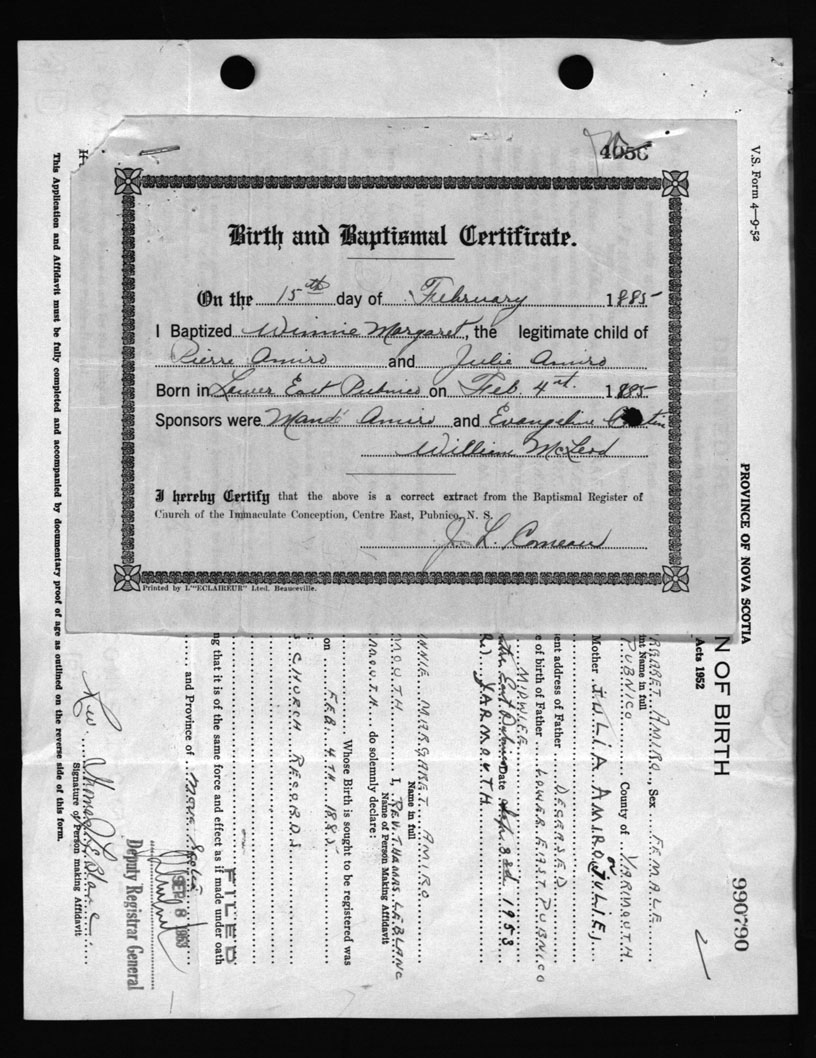 4056
Birth and Baptismal Certificate.
On the 15th day of February 1885
I Baptized Winnie Margaret, the legitimate child of
Pierre Amiro and Julie Amiro
Born in Lower East Pubnico on Feb. 4st. 1885
Sponsors were Amiro and Evangeline
William McLeod
I hereby Certify that the above is a correct extract from the Baptismal Register of
Church of the Immaculate Conception, Centre East, Pubnico, N. S.
J. L. Comeau
Printed by L'"ECLAIREUR" Lted. Beauceville.
V.S. Form 4—9-52
PROVINCE OF NOVA SCOTIA
N OF BIRTH
990790
Acts 1952
RGARET AMIRO Sex FEMALE
nt Name in full
PUBNICO County of YARMOUTH
Mother JULIA AMIRO (or JULIE)
ent address of Father DECEASED
e of birth of Father LOWER EAST PUBNICO
MIDWIFE
East Pubnico Date Sep. 3rd 1953
YARMOUTH
NNIE MARGARET AMIRO
Name in full
MOUTH I, REV. THOMAS LEBLANC
Name of Person Making Affidavit
MOUTH do solemnly declare:
Whose Birth is sought to be registered was
on FEB. 4TH 1885
S CHURCH RECORDS
ng that it is of the same force and effect as if made under oath
and Province of Nova Scotia
FILED
SEP 8 1953
Deputy Registrar General
Rev. Thomas LeBlanc
Signature of Person making Affidavit
This Application and Affidavit must be fully completed and accompanied by documentary proof of age as outlined on the reverse side of this form.